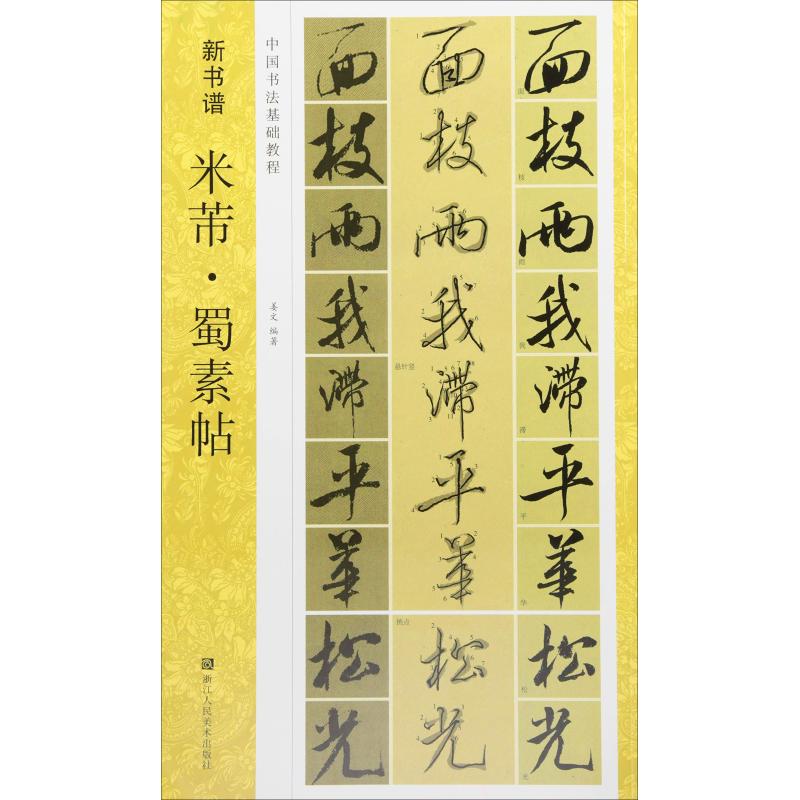 新书谱
米芾·蜀素帖
浙江人民美术出版社
中国书法基础教程
姜文 编著
面 面 面
枝 枝 枝
雨 雨 雨
我 我 我
悬针竖
滞 滞 滞
平 平 平
華 華 華
挑点
松 松 松
光 光 光
枝
滞
平
华
松
光